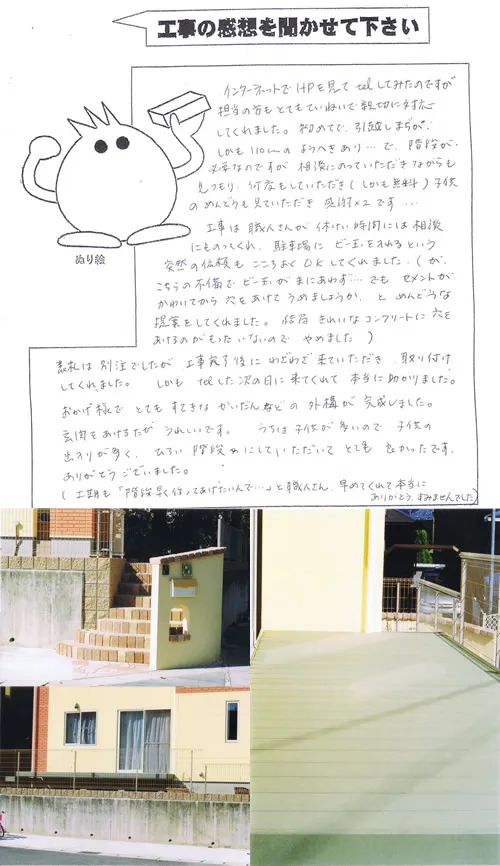 工事の感想を聞かせて下さい
インターネットでHPを見てtelしてみたのですが
担当の方もとてもていねいで親切に対応
してくれました。初めてで、引越しまぢか、
しかも110cmのようへきあり…で、階段が、
必要なのですが 相談にのっていただきながらも
見つもり、何度もしていただき(しかも無料)子供
のめんどうも見ていただき 感謝×2です....
工事は職人さんが休けい時間には相談
にものってくれ、駐車場に ビー玉を入れるという
突然の依頼も こころよくOKしてくれました。(が、
こちらの不備で ビー玉が まにあわず…でも、セメントが
かわいてから 穴をあけて うめましょうか、と めんどうな
提案をしてくれました。結局 きれいなコンクリートに穴を
あけるのがもったいないので やめました )
ぬり絵
表札は 別注でしたが 工事完了後に わざわざ来ていただき 取り付け
してくれました。 しかも telした次の日に来てくれて 本当に助かりました。
おかげ様で とても すてきな かいだんなどの 外構が 完成しました。
玄関をあけるたび うれしいです。 うちは子供が 多いので 子供の
出入りが多く、 ひろい 階段 にして いただいて とても 良かったです。
ありがとうございました。
( 工期も「階段早く作ってあげたいんで…」と職人さん、早めてくれて本当に
ありがとう、すみませんでした)